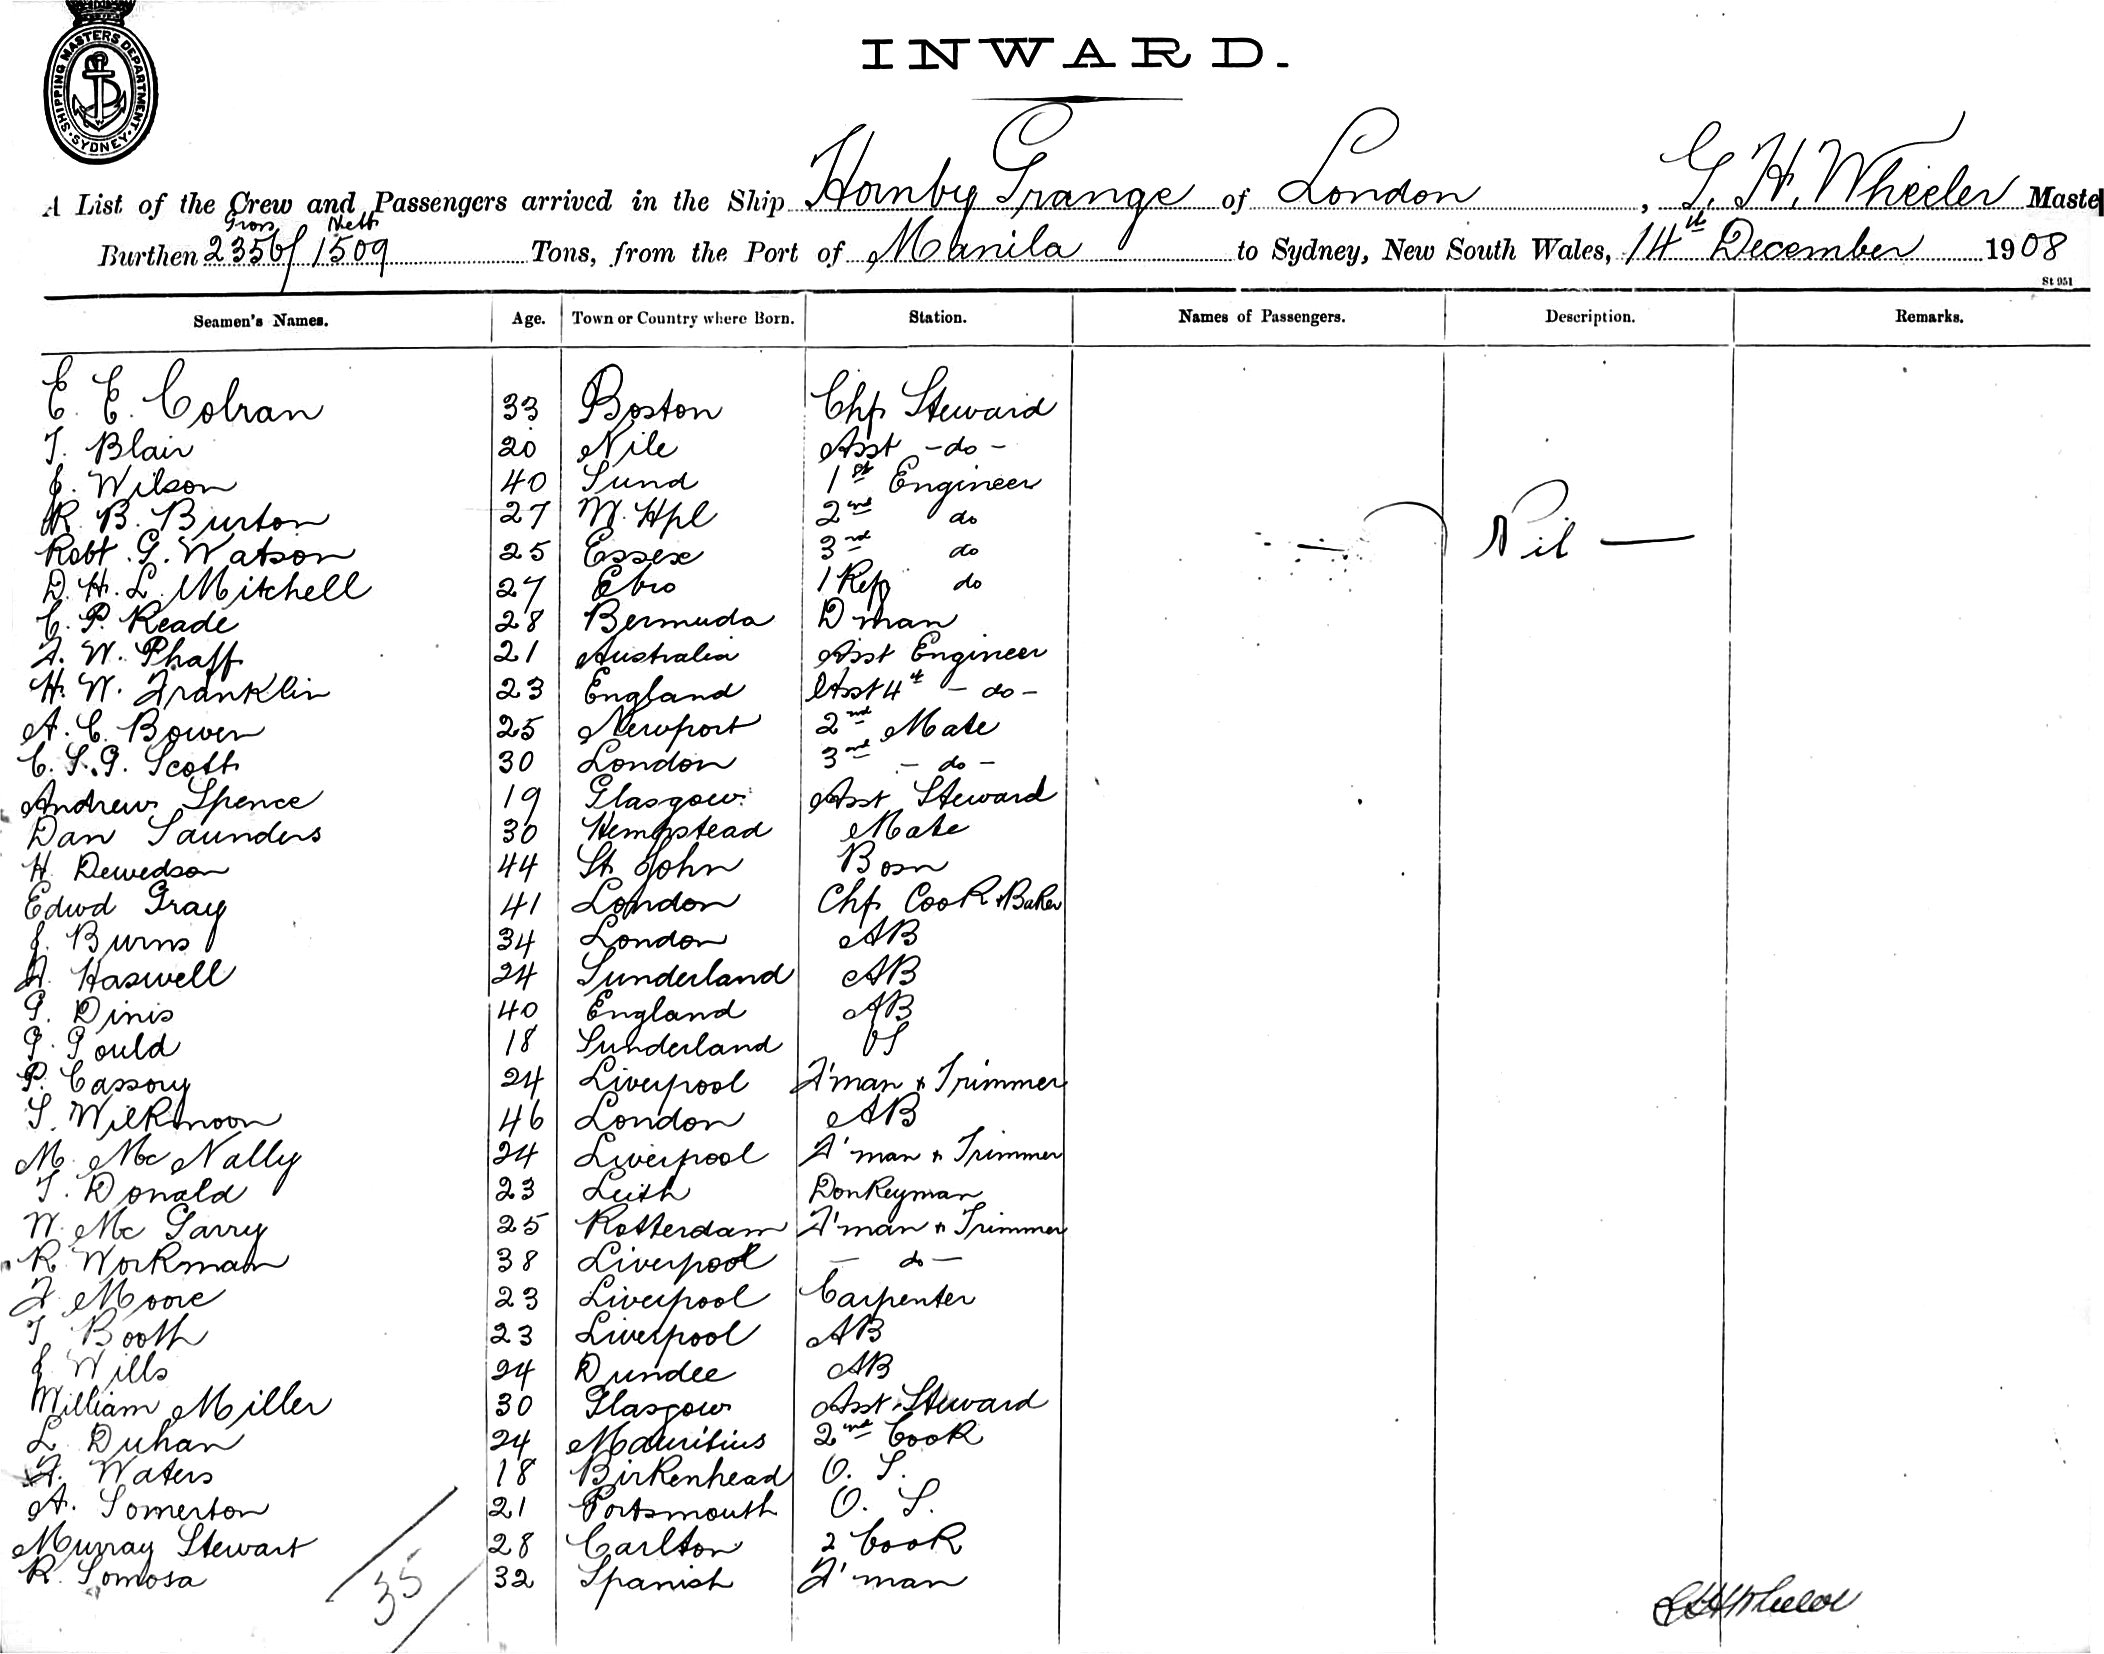 SHIPPING MASTERS DEPARTMENT · SYDNEY ·
INWARD.
A List of the Crew and Passengers arrived in the Ship Hornby Grange of London, G. H. Wheeler Maste
Gross Nett
Burthen 2356/1509 Tons, from the Port of Manila to Sydney, New South Wales, 14th December 1908
St 951
Seamen's Names. Age. Town or Country where Born. Station. Names of Passengers. Description. Remarks.
E. E. Colran 33 Boston Chf Steward
T. Blair 20 Nile Asst - do -
J. Wilson 40 Sund 1st Engineer
R. B. Burton 27 W. Hpl 2nd do
Nil —
Robt. G. Watson 25 Essex 3rd do
D. H. L. Mitchell 27 Ebro 1 Ref do
C. P. Reade 28 Bermuda D man
F. W. Phaff 21 Australia Asst Engineer
H. W. Franklin 23 England Asst 4th - do -
A. C. Bower 25 Newport 2nd Mate
C. S. G. Scott 30 London 3rd - do -
Andrew Spence 19 Glasgow Asst Steward
Dan Saunders 30 Hempstead Mate
H. Dewedson 44 St John Bosn
Edwd Gray 41 London Chf Cook & Baker
J. Burns 34 London AB
A. Haswell 24 Sunderland AB
G. Dinis 40 England AB
G. Gould 18 Sunderland OS
P. Cassory 24 Liverpool F'man & Trimmer
S. Wilkmoon 46 London AB
M. McNally 24 Liverpool F'man & Trimmer
T. Donald 23 Leith Donkeyman
W. McGarry 25 Rotterdam F'man & Trimmer
R. Workman 38 Liverpool - do -
F. Moore 23 Liverpool Carpenter
T. Booth 23 Liverpool AB
J. Wills 24 Dundee AB
William Miller 30 Glasgow Asst. Steward
L. Duhan 24 Mauritius 2nd Cook
F. Waters 18 Birkenhead O. S.
A. Somerton 21 Portsmouth O. S.
Murray Stewart 28 Carlton 2 Cook
R. Somosa 32 Spanish F'man
35
G H Wheeler